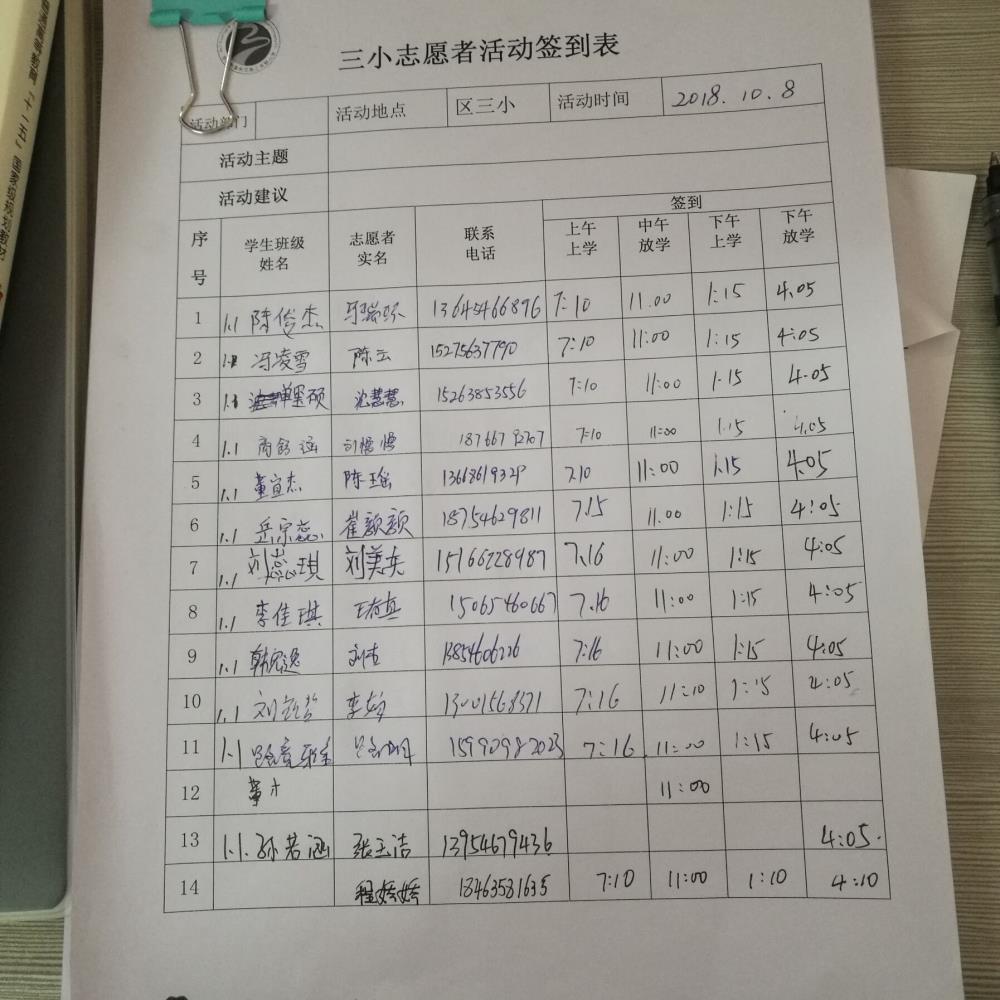 三小志愿者活动签到表
活动部门 活动地点 区三小 活动时间 2018.10.8
活动主题
活动建议
序号 学生班级姓名 志愿者实名 联系电话 签到
上午上学 中午放学 下午上学 下午放学
1 1.1 陈俊杰 13645466896 7:10 11.00 1:15 4.05
2 冯凌雪 陈云 15275637790 7:10 11:00 1:15 4:05
3 沈慧慧 15263853556 7:10 11:00 1.15 4.05
4 1.1 商舒涵 刘愣愣 18766792707 7:10 11:00 1.15 4.05
5 1.1 董宜杰 陈瑶 13618619329 7.10 11:00 1.15 4.05
6 1.1 岳宗蕊 崔颖颖 18754629811 7.15 11.00 1:15 4:05
7 1.1 刘蕊琪 刘美东 15166228987 7.16 11:00 1:15 4:05
8 1.1 李佳琪 15065460667 7.16 11:00 1:15 4:05
9 1.1 13854606226 7:16 11:00 1:15 4:05
10 1.1 李婷 13001568371 7:16 11:10 1:15 4:05
11 1.1 15990982023 7:16 11:00 1:15 4:05
12 董 11:00
13 1.1.孙若涵 张玉洁 13954679436 4:05.
14 程娇娇 18463581635 7:10 11:00 1:10 4:10